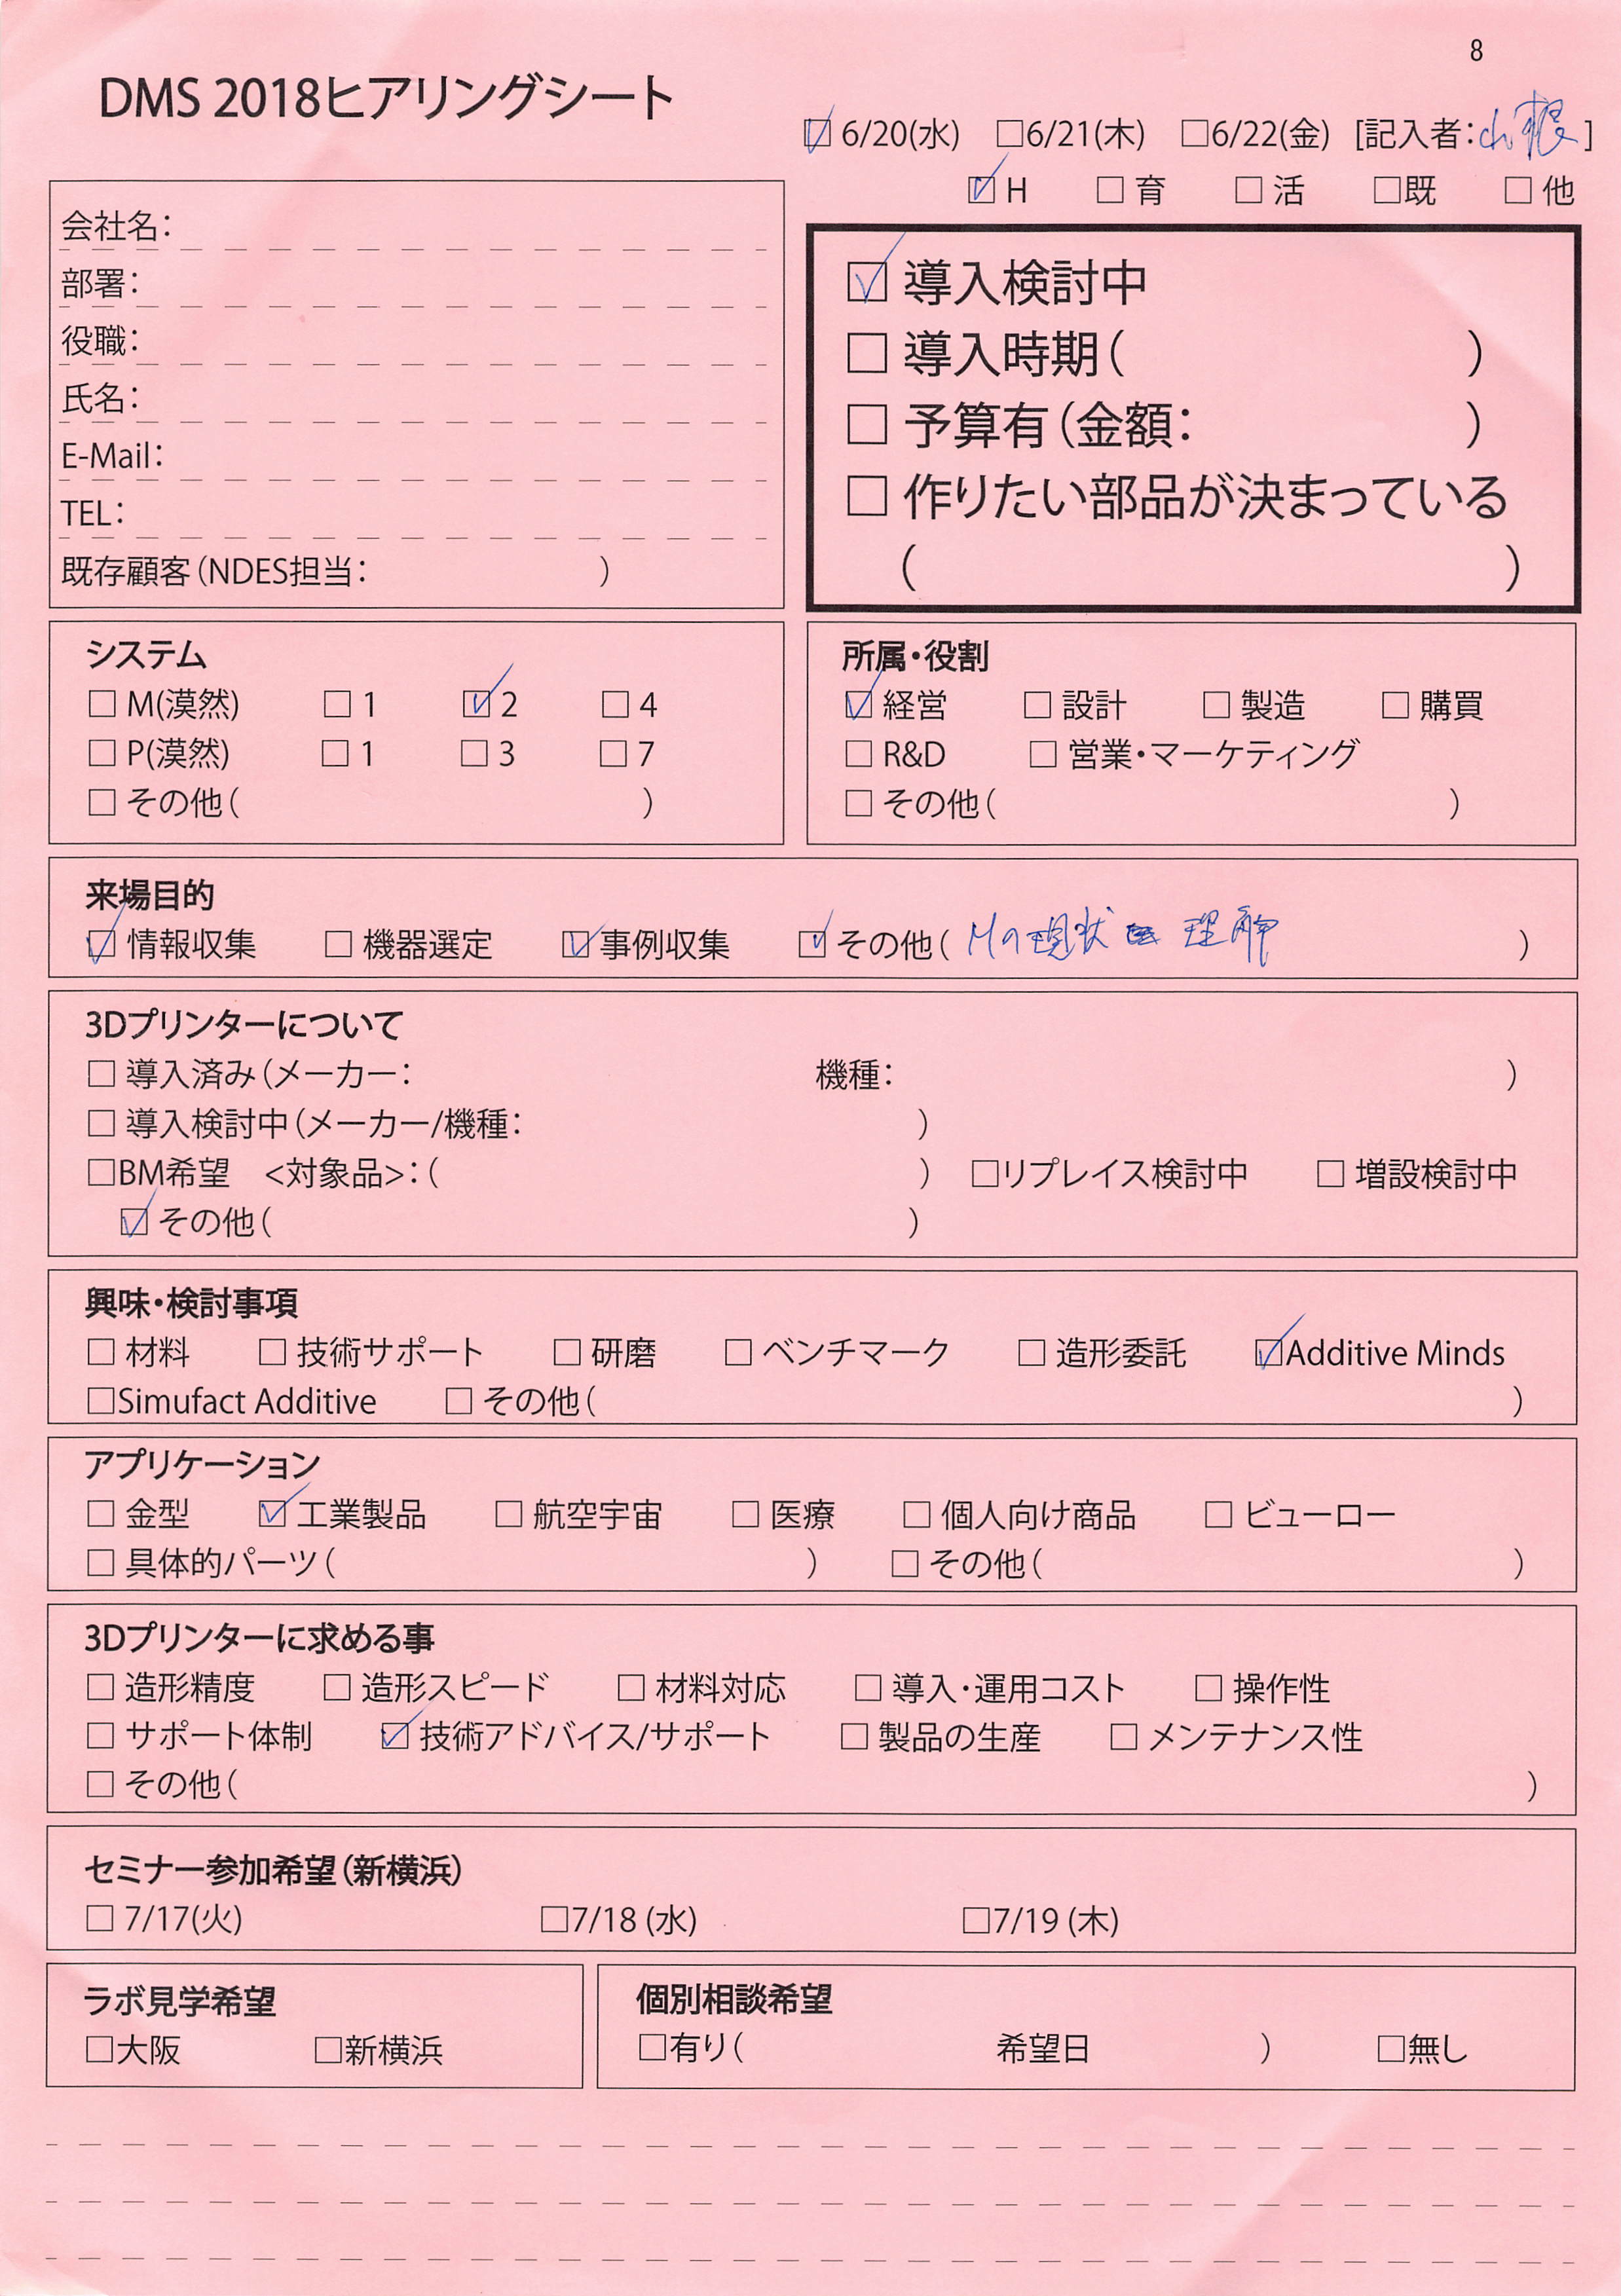 8
DMS 2018ヒアリングシート
☑ 6/20(水) □6/21(木) □6/22(金) [記入者:山根]
☑ H □ 育 □ 活 □既 □ 他
会社名:
部署:
役職:
氏名:
E-Mail:
TEL:
既存顧客(NDES担当: )
☑ 導入検討中
□ 導入時期( )
□ 予算有(金額: )
□ 作りたい部品が決まっている
( )
システム
□ M(漠然) □ 1 ☑ 2 □ 4
□ P(漠然) □ 1 □ 3 □ 7
□ その他( )
所属・役割
☑ 経営 □ 設計 □ 製造 □ 購買
□ R&D □ 営業・マーケティング
□ その他( )
来場目的
☑ 情報収集 □ 機器選定 ☑ 事例収集 ☑ その他( Mの現状 理解 )
3Dプリンターについて
□ 導入済み(メーカー: 機種: )
□ 導入検討中(メーカー/機種: )
□BM希望 <対象品>:( ) □リプレイス検討中 □ 増設検討中
☑ その他( )
興味・検討事項
□ 材料 □ 技術サポート □ 研磨 □ ベンチマーク □ 造形委託 ☑Additive Minds
□Simufact Additive □ その他( )
アプリケーション
□ 金型 ☑ 工業製品 □ 航空宇宙 □ 医療 □ 個人向け商品 □ ビューロー
□ 具体的パーツ( ) □ その他( )
3Dプリンターに求める事
□ 造形精度 □ 造形スピード □ 材料対応 □ 導入・運用コスト □ 操作性
□ サポート体制 ☑ 技術アドバイス/サポート □ 製品の生産 □ メンテナンス性
□ その他( )
セミナー参加希望(新横浜)
□ 7/17(火) □7/18 (水) □7/19 (木)
ラボ見学希望
□大阪 □新横浜
個別相談希望
□有り( 希望日 ) □無し